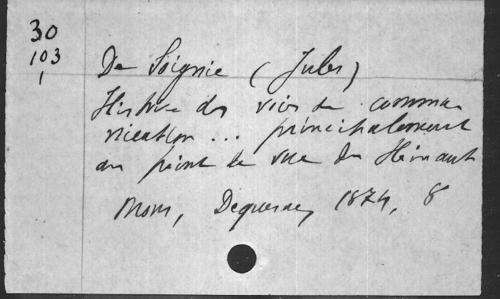 30
103
1
De Soignie (Jules)
Histoire des voies de commu
nication ... principalement
au point de vue du Hainaut
Mons, Dequesne, 1874, 8°